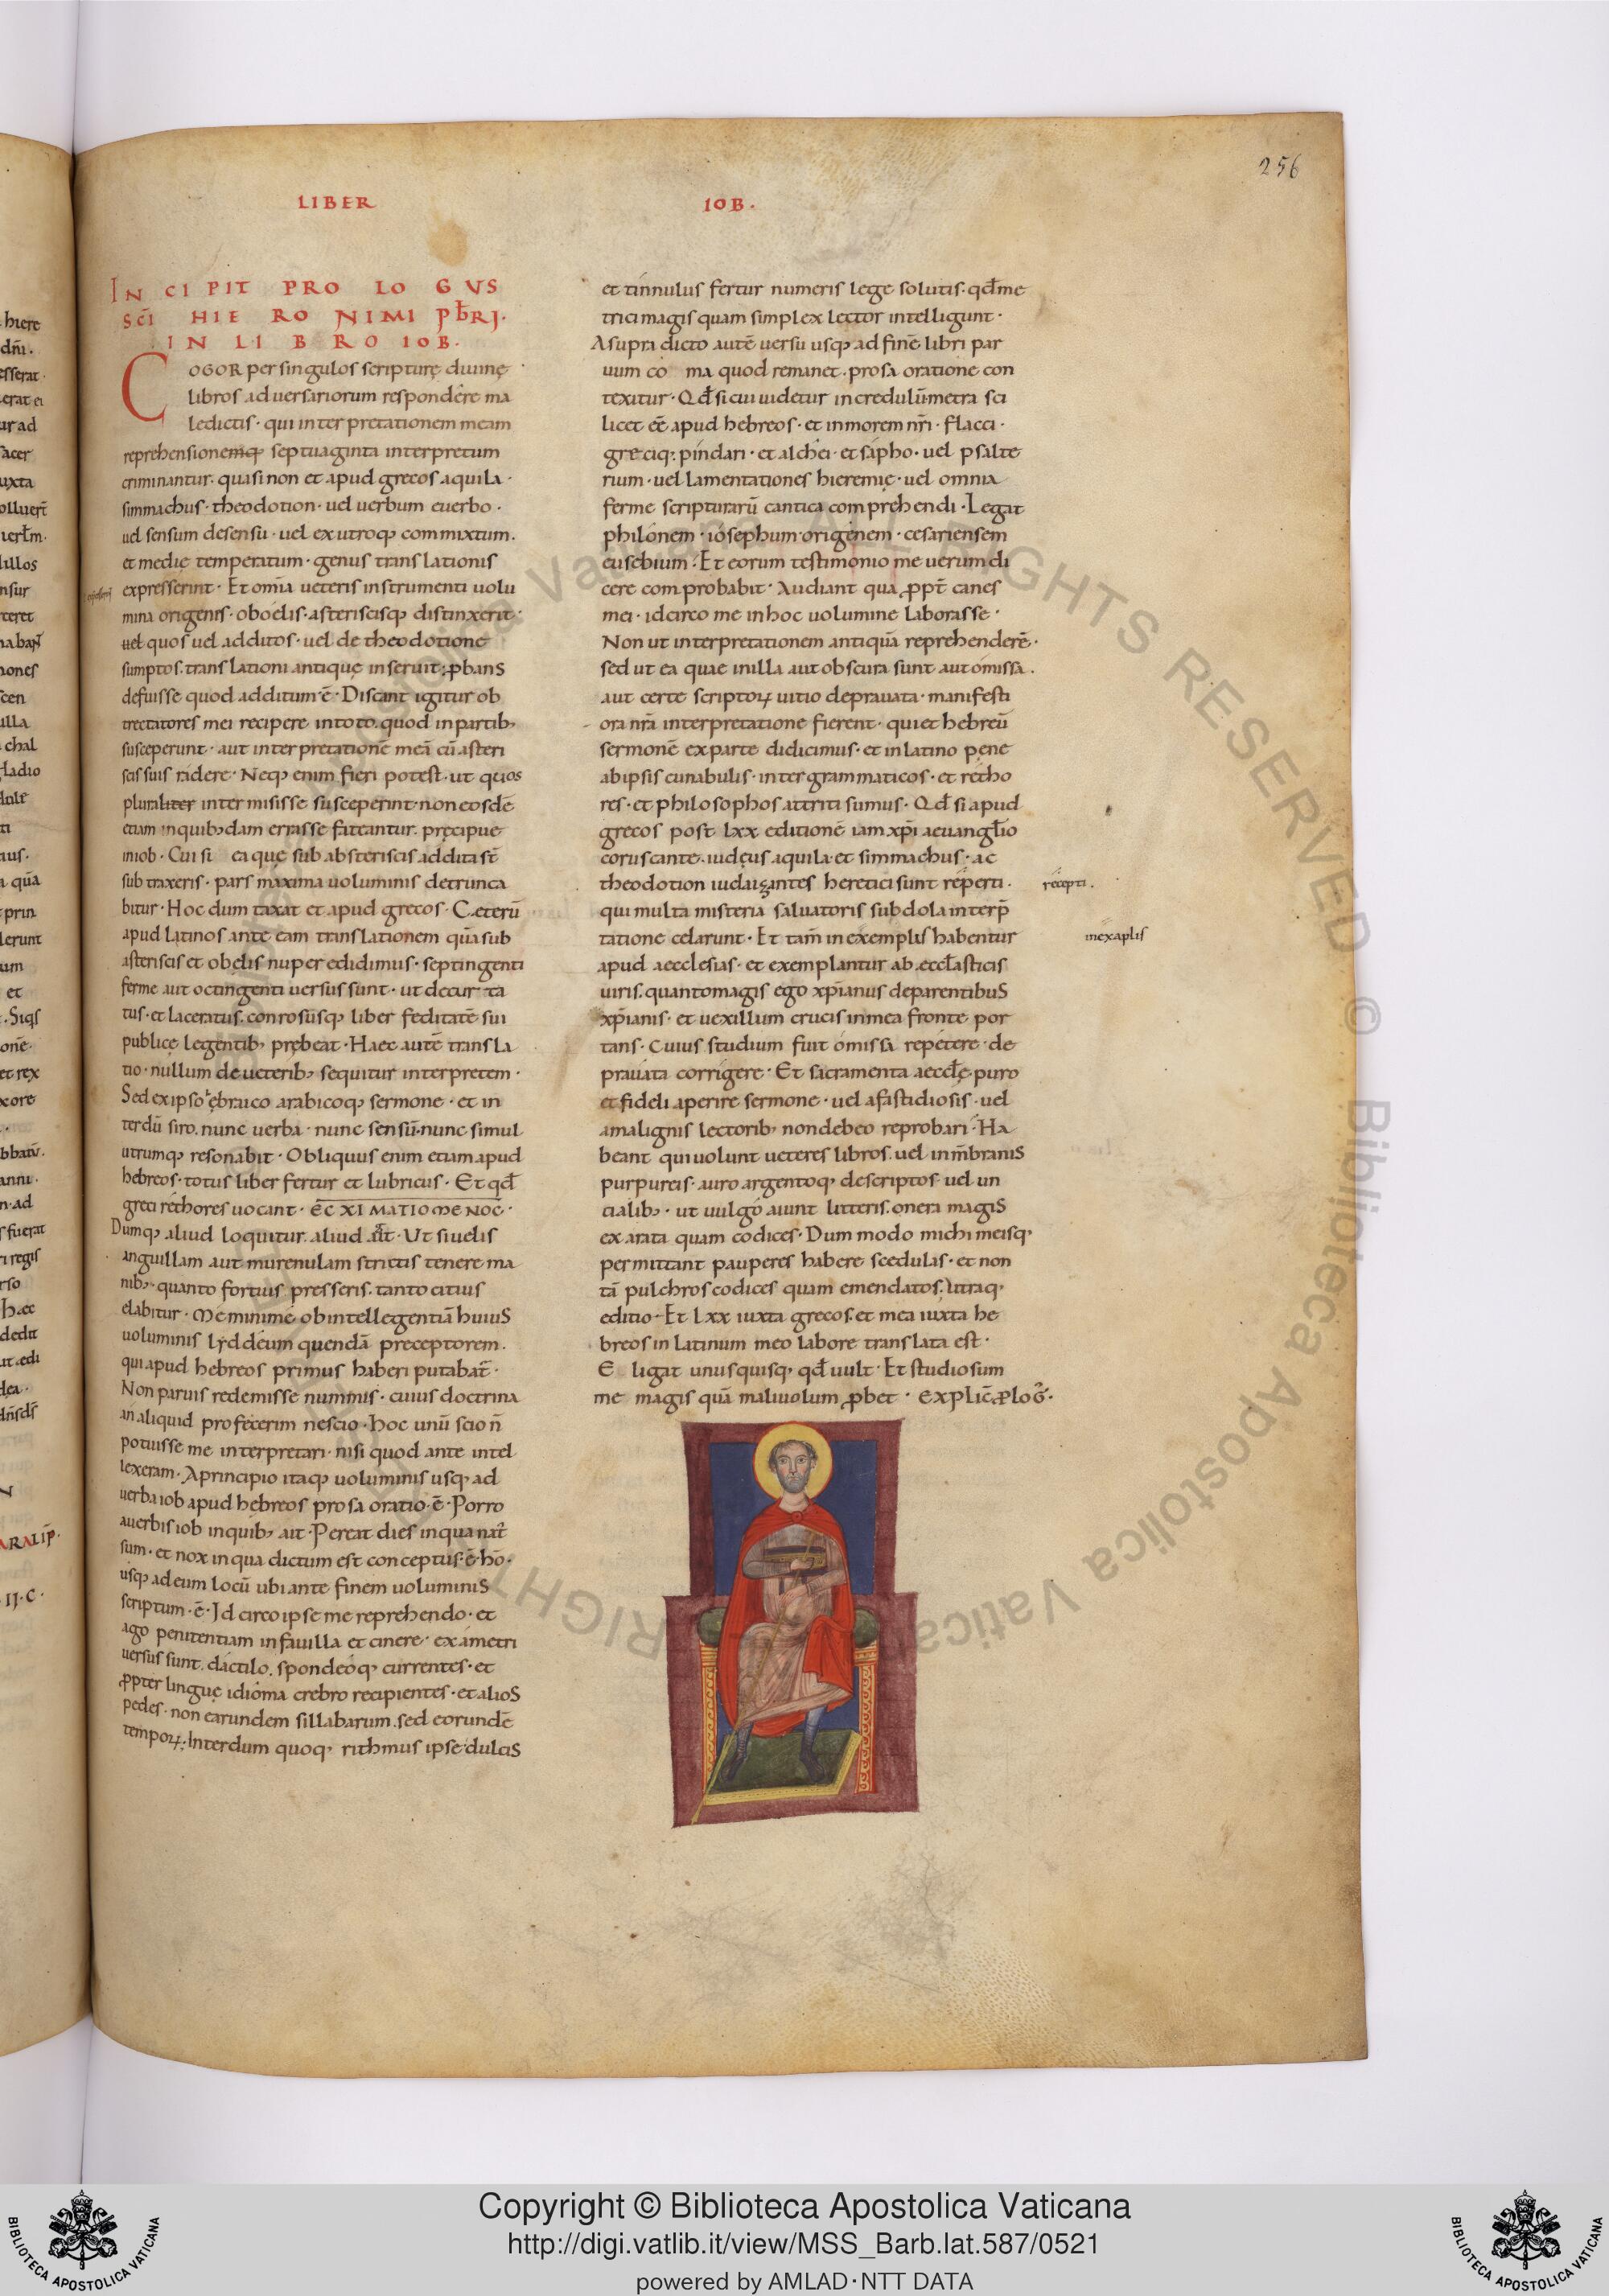 256
LIBER IOB.
IN CI PIT PRO LO GVS
SC̄I HIE RO NIMI PB̄RI.
IN LI B RO IOB.
COGOR per singulos scripturę diuinę
libros aduersariorum respondere ma
ledictis · qui interpretationem meam
reprehensionemq; septuaginta interpretum
criminantur · quasi non et apud grecos aquila ·
simmachus · theodotion · uel uerbum euerbo ·
uel sensum desensu · uel exutroq; commixtum ·
et medie temperatum · genus translationis
expresserint · Et om̄ia ueteris instrumenti uolu
mina origenis · oboelis · asteriscisq; distinxerit ·
uel quos uel additos · uel de theodotione
sumptos · translationi antiquę inseruit · ꝓbans
defuisse quod additum ē · Discant igitur ob
trectatores mei recipere intoto quod inpartib;
susceperunt · aut interpretationē meā cū asteri
scis suis ridere · Neq; enim fieri potest · ut quos
pluraliter intermisisse susceperint · non eosdē
etiam inquibusdam errasse fiteantur · pręcipue
iniob · Cui si ea quę sub absteriscis addita st̄
subtraxeris · pars maxima uoluminis detrunca
bitur · Hoc dum taxat et apud grecos · Cęterū
apud latinos ante eam translationem quā sub
asteriscis et obelis nuper edidimus · septingenti
ferme aut octingenti uersus sunt · ut decurta
tus · et laceratus · conrosusq; liber feditatē sui
publicę legentib; prębeat · Haec autē transla
tio · nullum de ueterib; sequitur interpretem ·
Sed ex ipso ębraico arabicoq; sermone · et in
terdū siro · nunc uerba · nunc sensū · nunc simul
utrumq; resonabit · Obliquus enim etiam apud
hebreos · totus liber fertur et lubricus · Et qđ
greci rethores uocant · ēC XI MATIOMENOC ·
Dumq; aliud loquitur aliud aīt · Ut siuelis
anguillam aut murenulam strictis tenere ma
nib; · quanto fortius presseris · tanto citius
elabitur · Meminime · obintellegentiā huius
uoluminis lyddeum quendā preceptorem ·
qui apud hebreos primus haberi putabat̄ ·
Non paruis redemisse nummis · cuius doctrina
an aliquid profecerim nescio · hoc unū scio n̄
potuisse me interpretari · nisi quod ante intel
lexeram · A principio itaq; uoluminis usq; ad
uerba iob apud hebreos prosa oratio · ē · Porro
auerbis iob inquib; ait · Pereat dies inqua nat̄
sum · et nox inqua dictum est conceptus · ē · hō ·
usq; adeum locū ubi ante finem uoluminis
scriptum · ē · Idcirco ipse me reprehendo · et
ago penitentiam infauilla et cinere · exámetri
uersus sunt · dáctilo · spondeóq; currentes · et
ꝓpter linguę idióma crebro recipientes · et alios
pedes · non earundem sillabarum · sed eorundē
tempoꝝ · Interdum quoq; rithmus ipse dulcis
et tinnulus fertur numeris lege solutis · qđ me
trici magis quam simplex lector intelligunt ·
A supra dicto autē uersu usq; ad finē libri par
uum co ma quod remanet · prosa oratione con
texitur · Qđ si cui uidetur incredulū metra sci
licet eē apud hebreos · et inmorem nr̄i · flacci ·
greciq; pindari · et alchei · et sápho · uel psalte
rium · uel lamentationes hieremię · uel omnia
ferme scripturarū cantica comprehendi · Legat
philónem · iósephum · origénem · cesariensem
eusebium · Et eorum testimonio me uerum di
cere comprobabit · Audiant qua ꝓpt̄ canes
mei · idcirco me inhoc uolumine laborasse ·
Non ut interpretationem antiquā reprehenderē ·
sed ut ea quae inilla aut obscura sunt aut omissa ·
aut certe scriptoꝝ uitio deprauata · manifesti
ora nr̄a interpretatione fierent · qui et hebreū
sermonē exparte didicimus · et inlatino pene
abipsis cunabulis · inter grammaticos · et retho
res · et philosophos attriti sumus · Qđ si apud
grecos post lxx editionē iam xp̄i aeuangl̄io
coruscante · iudęus aquila · et simmachus · ac
theodotion iudaizantes heretici sunt reperti ·
recepti ·
qui multa misteria saluatoris subdola interp̄
tatione celarunt · Et tam̄ in exemplis habentur
inexaplis
apud aecclesias · et exemplantur ab eccl̄asticis
uiris · quantomagis ego xp̄ianus deparentibus
xp̄ianis · et uexillum crucis inmea fronte por
tans · Cuius studium fuit omissa repetere · de
prauata corrigere · Et sacramenta aeccl̄ę puro
et fideli aperire sermone · uel afastidiosis · uel
amalignis lectorib; nondebeo reprobari · Ha
beant qui uolunt ueteres libros · uel inm̄branis
purpureis · auro argentoq; descriptos · uel un
cialib; · ut uulgo aiunt litteris · onera magis
exarata quam codices · Dum modo michi meisq;
permittant pauperes habere scedulas · et non
tā pulchros codices quam emendatos · Utraq;
editio · Et lxx iuxta grecos · et mea iuxta he
breos in latinum meo labore translata est ·
E ligat unusquisq; qđ uult · Et studiosum
me magis quā maliuolum ꝓbet · EXPLIC̄ ꝓLOḠ ·